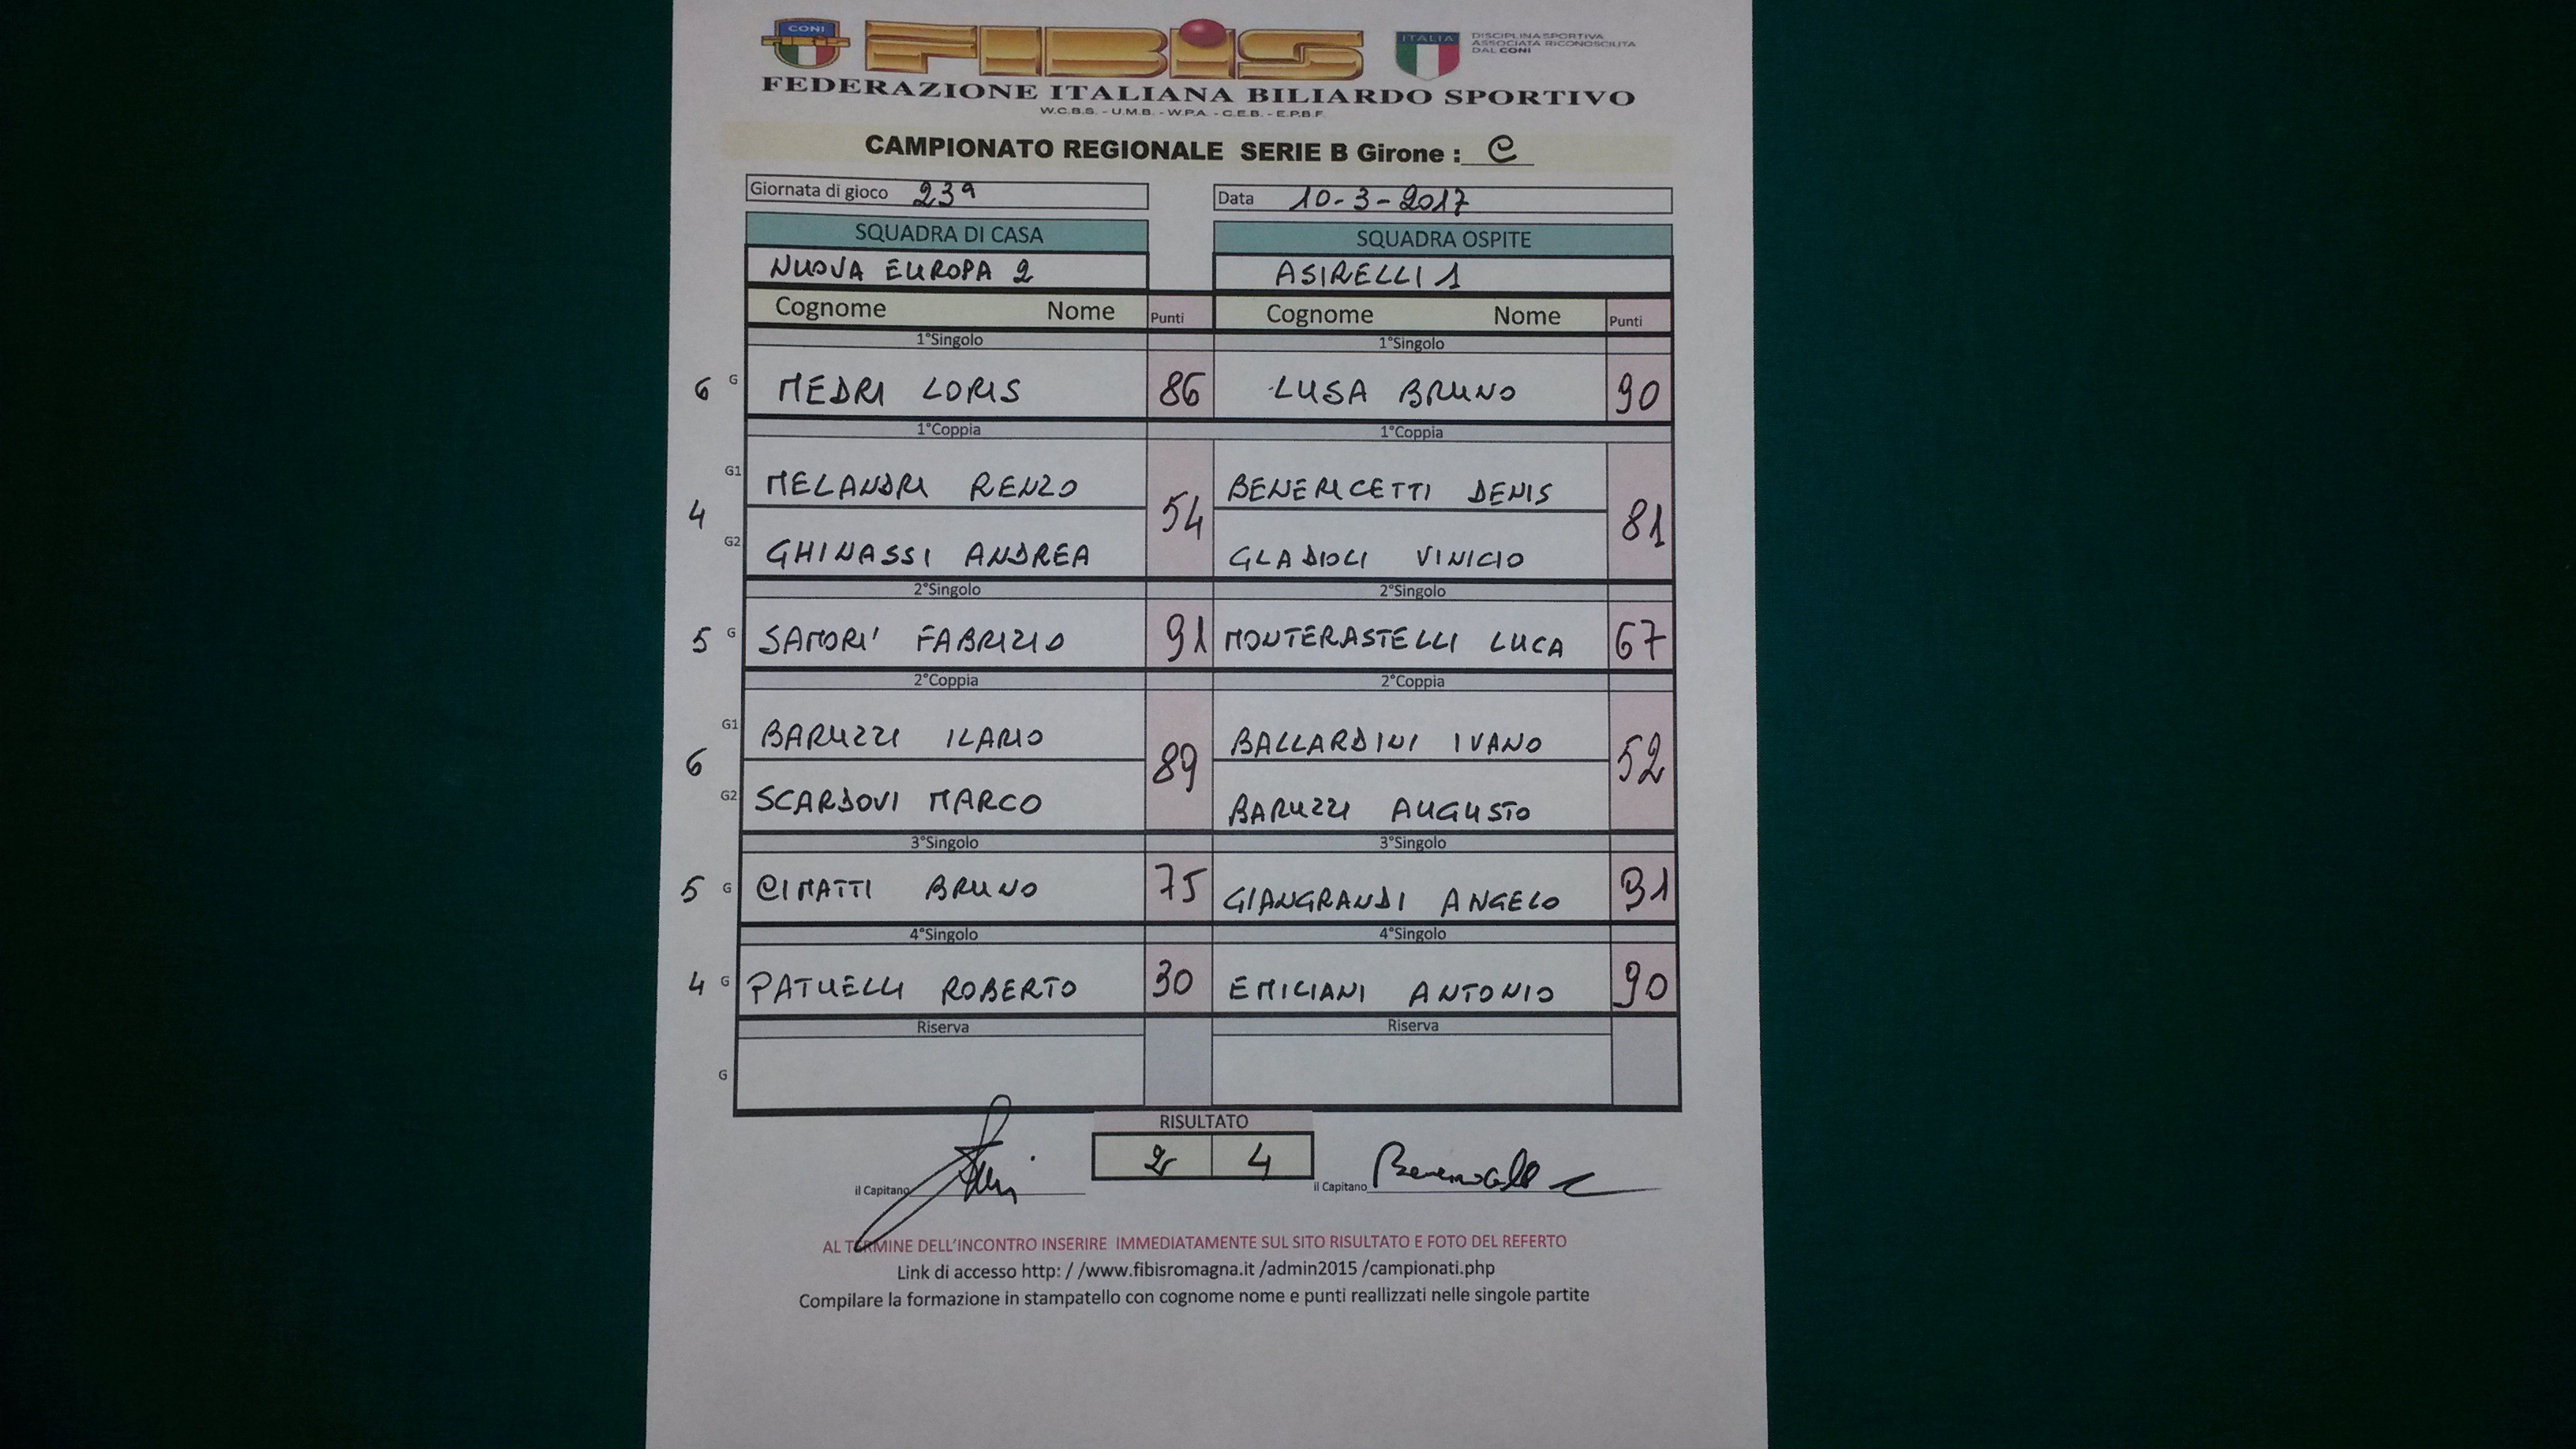 CONI
FIBIS
ITALIA
DISCIPLINA SPORTIVA
ASSOCIATA RICONOSCIUTA
DAL CONI
FEDERAZIONE ITALIANA BILIARDO SPORTIVO
W.C.B.S. - U.M.B. - W.P.A. - C.E.B. - E.P.B.F.
CAMPIONATO REGIONALE SERIE B Girone : C
Giornata di gioco 23ª Data 10-3-2017
SQUADRA DI CASA SQUADRA OSPITE
NUOVA EUROPA 2 ASIRELLI 1
Cognome Nome Punti Cognome Nome Punti
1°Singolo 1°Singolo
6 G MEDRI LORIS 86 LUSA BRUNO 90
1°Coppia 1°Coppia
G1 MELANDRI RENZO BENERICETTI DENIS
4 54 81
G2 GHINASSI ANDREA GLADIOLI VINICIO
2°Singolo 2°Singolo
5 G SAMORI' FABRIZIO 91 MONTERASTELLI LUCA 67
2°Coppia 2°Coppia
G1 BARUZZI ILARIO BALLARDINI IVANO
6 89 52
G2 SCARDOVI MARCO BARUZZI AUGUSTO
3°Singolo 3°Singolo
5 G CIMATTI BRUNO 75 GIANGRANDI ANGELO 91
4°Singolo 4°Singolo
4 G PATUELLI ROBERTO 30 EMILIANI ANTONIO 90
Riserva Riserva
G
RISULTATO
2 4
il Capitano il Capitano
AL TERMINE DELL'INCONTRO INSERIRE IMMEDIATAMENTE SUL SITO RISULTATO E FOTO DEL REFERTO
Link di accesso http: / /www.fibisromagna.it /admin2015 /campionati.php
Compilare la formazione in stampatello con cognome nome e punti reallizzati nelle singole partite